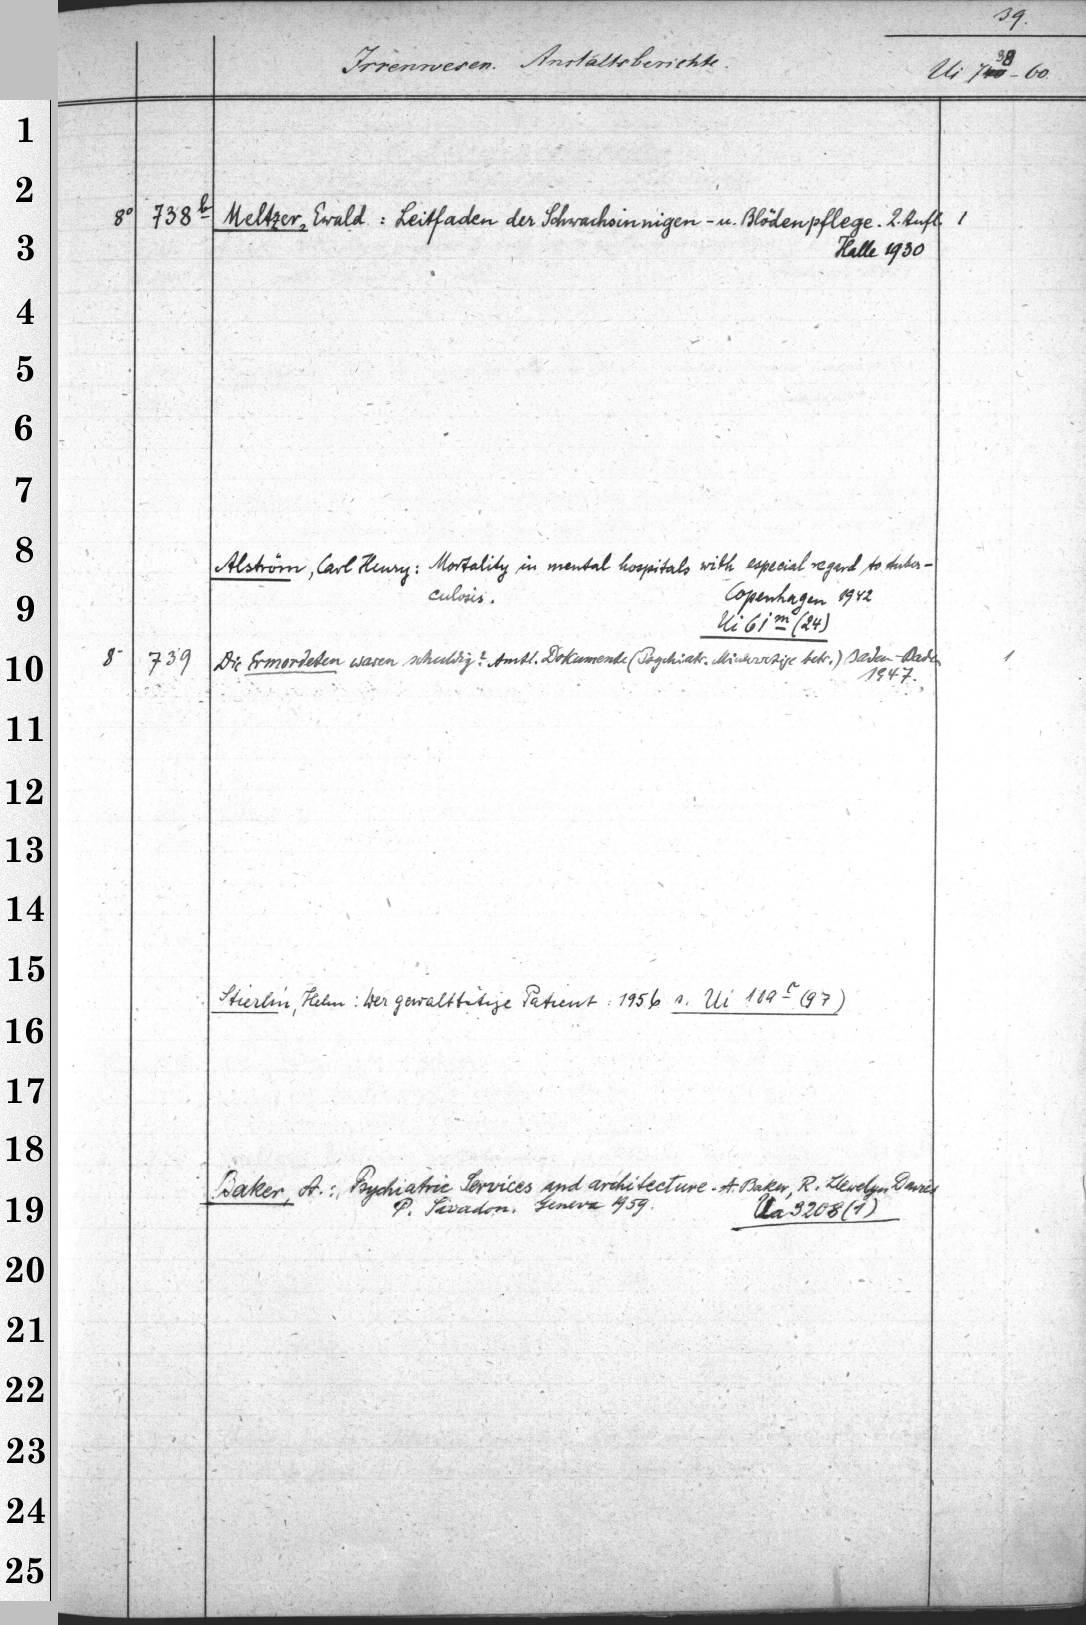 39.
Irrenwesen. Anstaltsberichte.
Ui 738-60.
1
2
8° 738b Meltzer, Ewald : Leitfaden der Schwachsinnigen- u. Blödenpflege. 2. Aufl. 1
3
Halle 1930
4
5
6
7
8
Alström, Carl Henry: Mortality in mental hospitals with especial regard to tuber-
9
culosis. Copenhagen 1942
Ui 61m (24)
10
8° 739 Die Ermordeten waren schuldig? Amtl. Dokumente (Psychiatr. betr.) Baden-Baden 1
1947.
11
12
13
14
15
Stierlin, Helm : Der gewalttätige Patient : 1956 s. Ui 119r (97)
16
17
18
Baker, A.: Psychiatric Services and architecture. A. Baker, R. Llewelyn Davies
19
P. Sivadon. Geneva 1959. Ua 3208 (1)
20
21
22
23
24
25